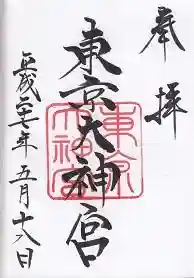 奉拝
東京大神宮
東京
大神宮
平成 年五月十八日